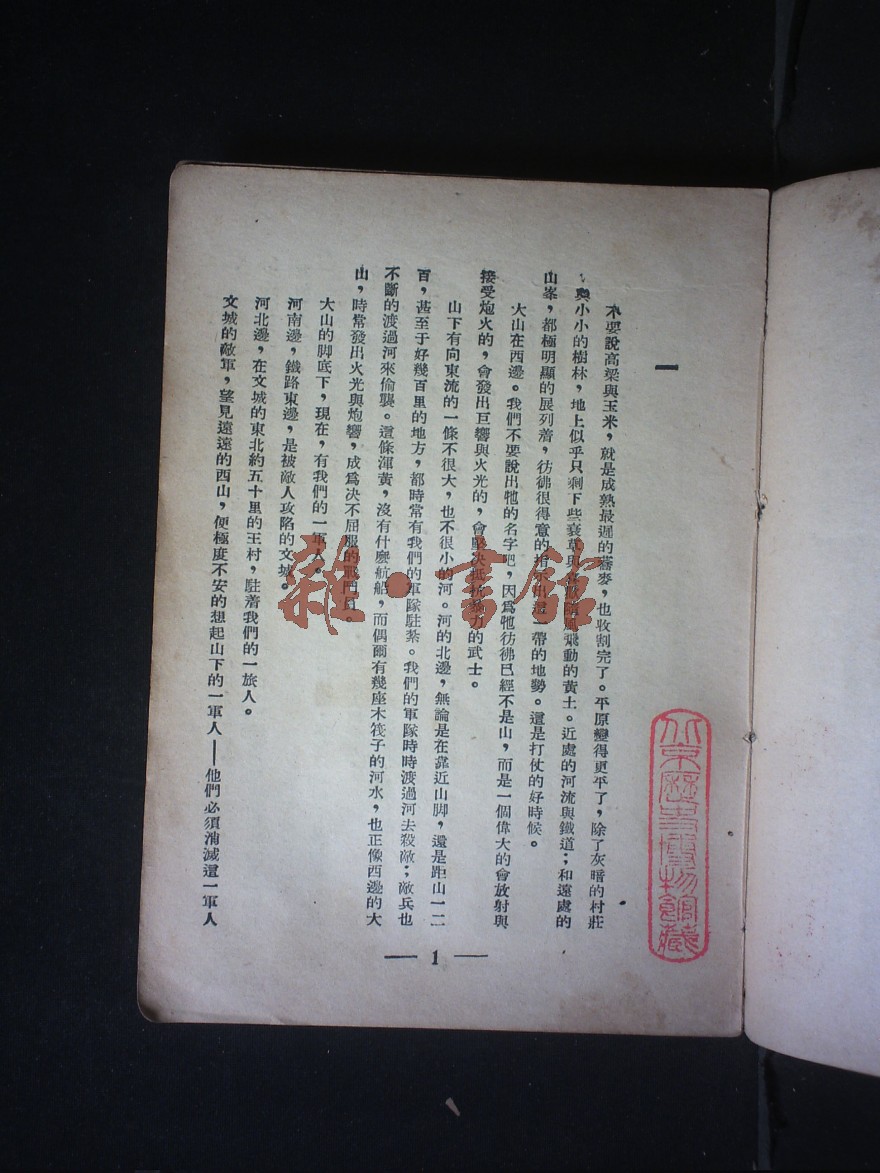 一
不要說高梁與玉米，就是成熟最遲的蕎麥，也收割完了。平原變得更平了，除了灰暗的村莊
、與小小的樹林，地上似乎只剩下些衰草與飛動的黃土。近處的河流與鐵道；和遠處的
山峯，都極明顯的展列着，彷彿很得意的指示出這一帶的地勢。這是打仗的好時候。
大山在西邊。我們不要說出牠的名字吧，因爲牠彷彿已經不是山，而是一個偉大的會放射與
接受炮火的，會發出巨響與火光的，會堅決抵抗暴力的武士。
山下有向東流的一條不很大，也不很小的河。河的北邊，無論是在靠近山脚，還是距山一二
百，甚至于好幾百里的地方，都時常有我們的軍隊駐紮。我們的軍隊時時渡過河去殺敵；敵兵也
不斷的渡過河來偷襲。這條渾黃，沒有什麽航船，而偶爾有幾座木筏子的河水，也正像西邊的大
山，時常發出火光與炮響，成爲決不屈服的戰鬥員。
大山的脚底下，現在，有我們的一軍人。
河南邊，鐵路東邊，是被敵人攻陷的文城。
河北邊，在文城的東北約五十里的王村，駐着我們的一旅人。
文城的敵軍，望見遠遠的西山，便極度不安的想起山下的一軍人——他們必須消滅這一軍人
— 1 —
北京歷史博物館藏
雜·書館